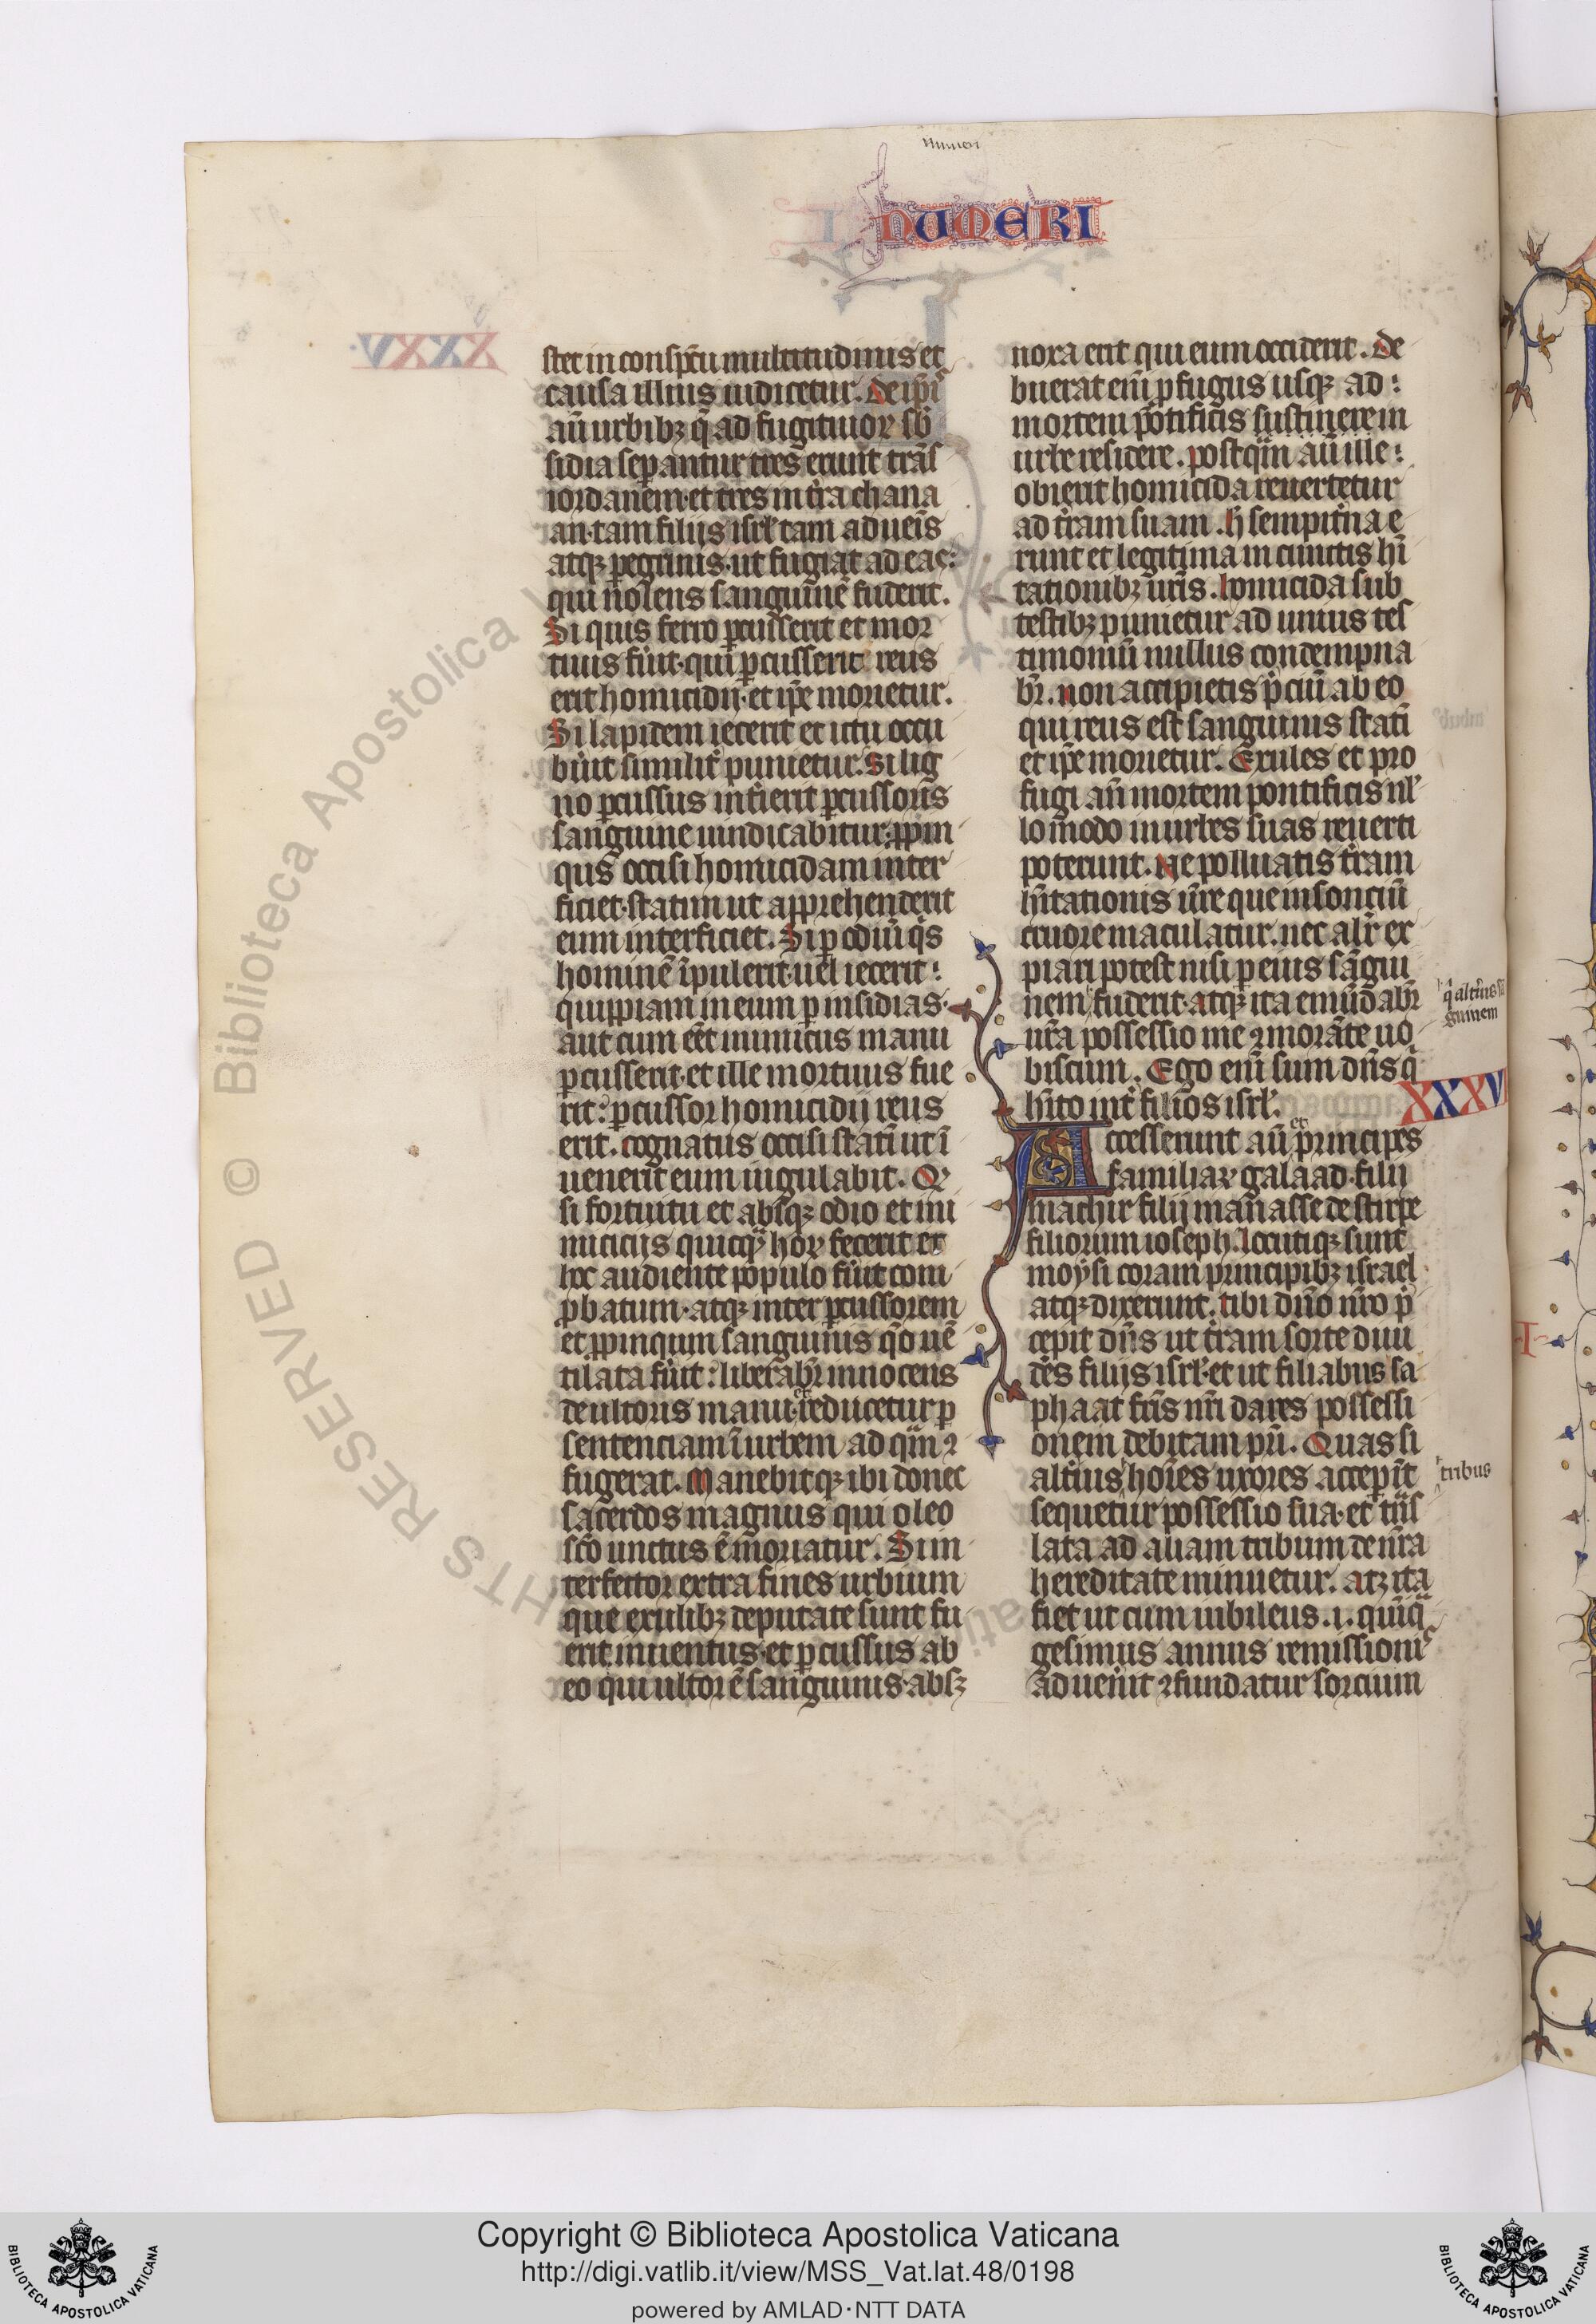 numeri
NUMERI
stet in conspc̄tu multitudinis et
causa illius iudicetur. De ip̄is
aūt urbibꝫ q̄ ad fugitiuoꝝ sb̄
sidia sepantur tres erunt trās
iordanem·et tres in t̄ra chana
an·tam filijs isrl̄ tam aduenis
atqꝫ peg̓nis·ut fugiat ad eas:
qui nolens sanguinē fuderit.
Si quis ferro ꝑcusserit et mor
tuus fūit·qui ꝑcusserit reus
erit homicidij·et ip̄e morietur.
Si lapidem iecerit et ictu occu
būit similit̓ punietur. Si lig
no ꝑcussus int̓ierit ꝑcussoris
sanguine uindicabitur. ꝓpin
quꝰ occisi homicidam inter
ficiet·statim ut apprehenderit
eum interficiet. Si ꝑ odiū q̓s
hominē īpulerit·uel iecerit:
quippiam in eum ꝑ insidias·
aut cum eēt inimicus manu
ꝑcusserit·et ille mortuus fue
rit: ꝑcussor homicidij reus
erit. cognatus occisi statī ut ī
uenerit eum iugulabit. Qꝫ
si fortuitu et absqꝫ odio et ini
micicijs quicq̄ hoꝝ fecerit et
hoc audiente populo fūit com
ꝓbatum·atqꝫ inter ꝑcussorem
et ꝓpinqum sanguinis q̄o uē
tilata fūit: liberabr̄ innocens
de ultoris manu·et reducetur ꝑ
sentenciam ī urbem ad qm̄ ꝯ
fugerat. Manebitqꝫ ibi donec
sacerdos magnus qui oleo
sc̄o unctus ē moriatur. Si in
terfector extra fines urbium
que exulibꝫ deputate sunt fu
erit inuentus·et ꝑcussus ab
eo qui ultor ē sanguinis·absꝫ
noxa erit qui eum occiderit. De
buerat enī ꝓfugus usqꝫ ad:
mortem pōtificis sustinere in
urbe residere. postqm̄ aūt ille:
obierit homicida reuertetur
ad t̄ram suam. h̄ sempit̓na e
runt et legitima in cunctis hī
tationibꝫ ur̄is. homicida sub
testibꝫ punietur ad unius tes
timoniū nullus condempna
br̄. non accipietis p̓ciū ab eo
qui reus est sanguinis statī
et ip̄e morietur. Exules et pro
fugi an̄ mortem pontificis nl̄
lo modo in urbes suas reuerti
poterunt. Ne polluatis t̄ram
hītationis ur̄e que insonciū
cruore maculatur. nec alr̄ ex
piari potest nisi ꝑ eius sāgui
nem fuderit·atqꝫ ita emūdabr̄
q̄ alt̓ius sā
guinem
ur̄a possessio me ꝯmorāte uo
biscum. Ego enī sum dn̄s q̄
hīto int̓ filios isrl̄.
XXXVI
Accesserunt aūt et principes
familiaꝝ galaad·filij
machir filij manasse de stirpe
filiorum ioseph. locutiqꝫ sunt
moysi coram principibꝫ israel
atqꝫ dixerunt. tibi dn̄o nr̄o p̄
cepit dn̄s ut t̄ram sorte diui
des filijs isrl̄·et ut filiabus sa
phaat fr̄is nr̄i dares possessi
onem debitam pr̄i. Quas si
alt̓ius hoīes uxores accepīt
tribus
sequetur possessio sua·et tn̄s
lata ad aliam tribum de nr̄a
hereditate minuetur. atꝫ ita
fiet ut cum iubileus .i. quīq̄
gesimus annus remissionis
aduenīt ꝯfundatur sorcium
Copyright © Biblioteca Apostolica Vaticana
http://digi.vatlib.it/view/MSS_Vat.lat.48/0198
powered by AMLAD·NTT DATA
BIBLIOTECA APOSTOLICA VATICANA
BIBLIOTECA APOSTOLICA VATICANA